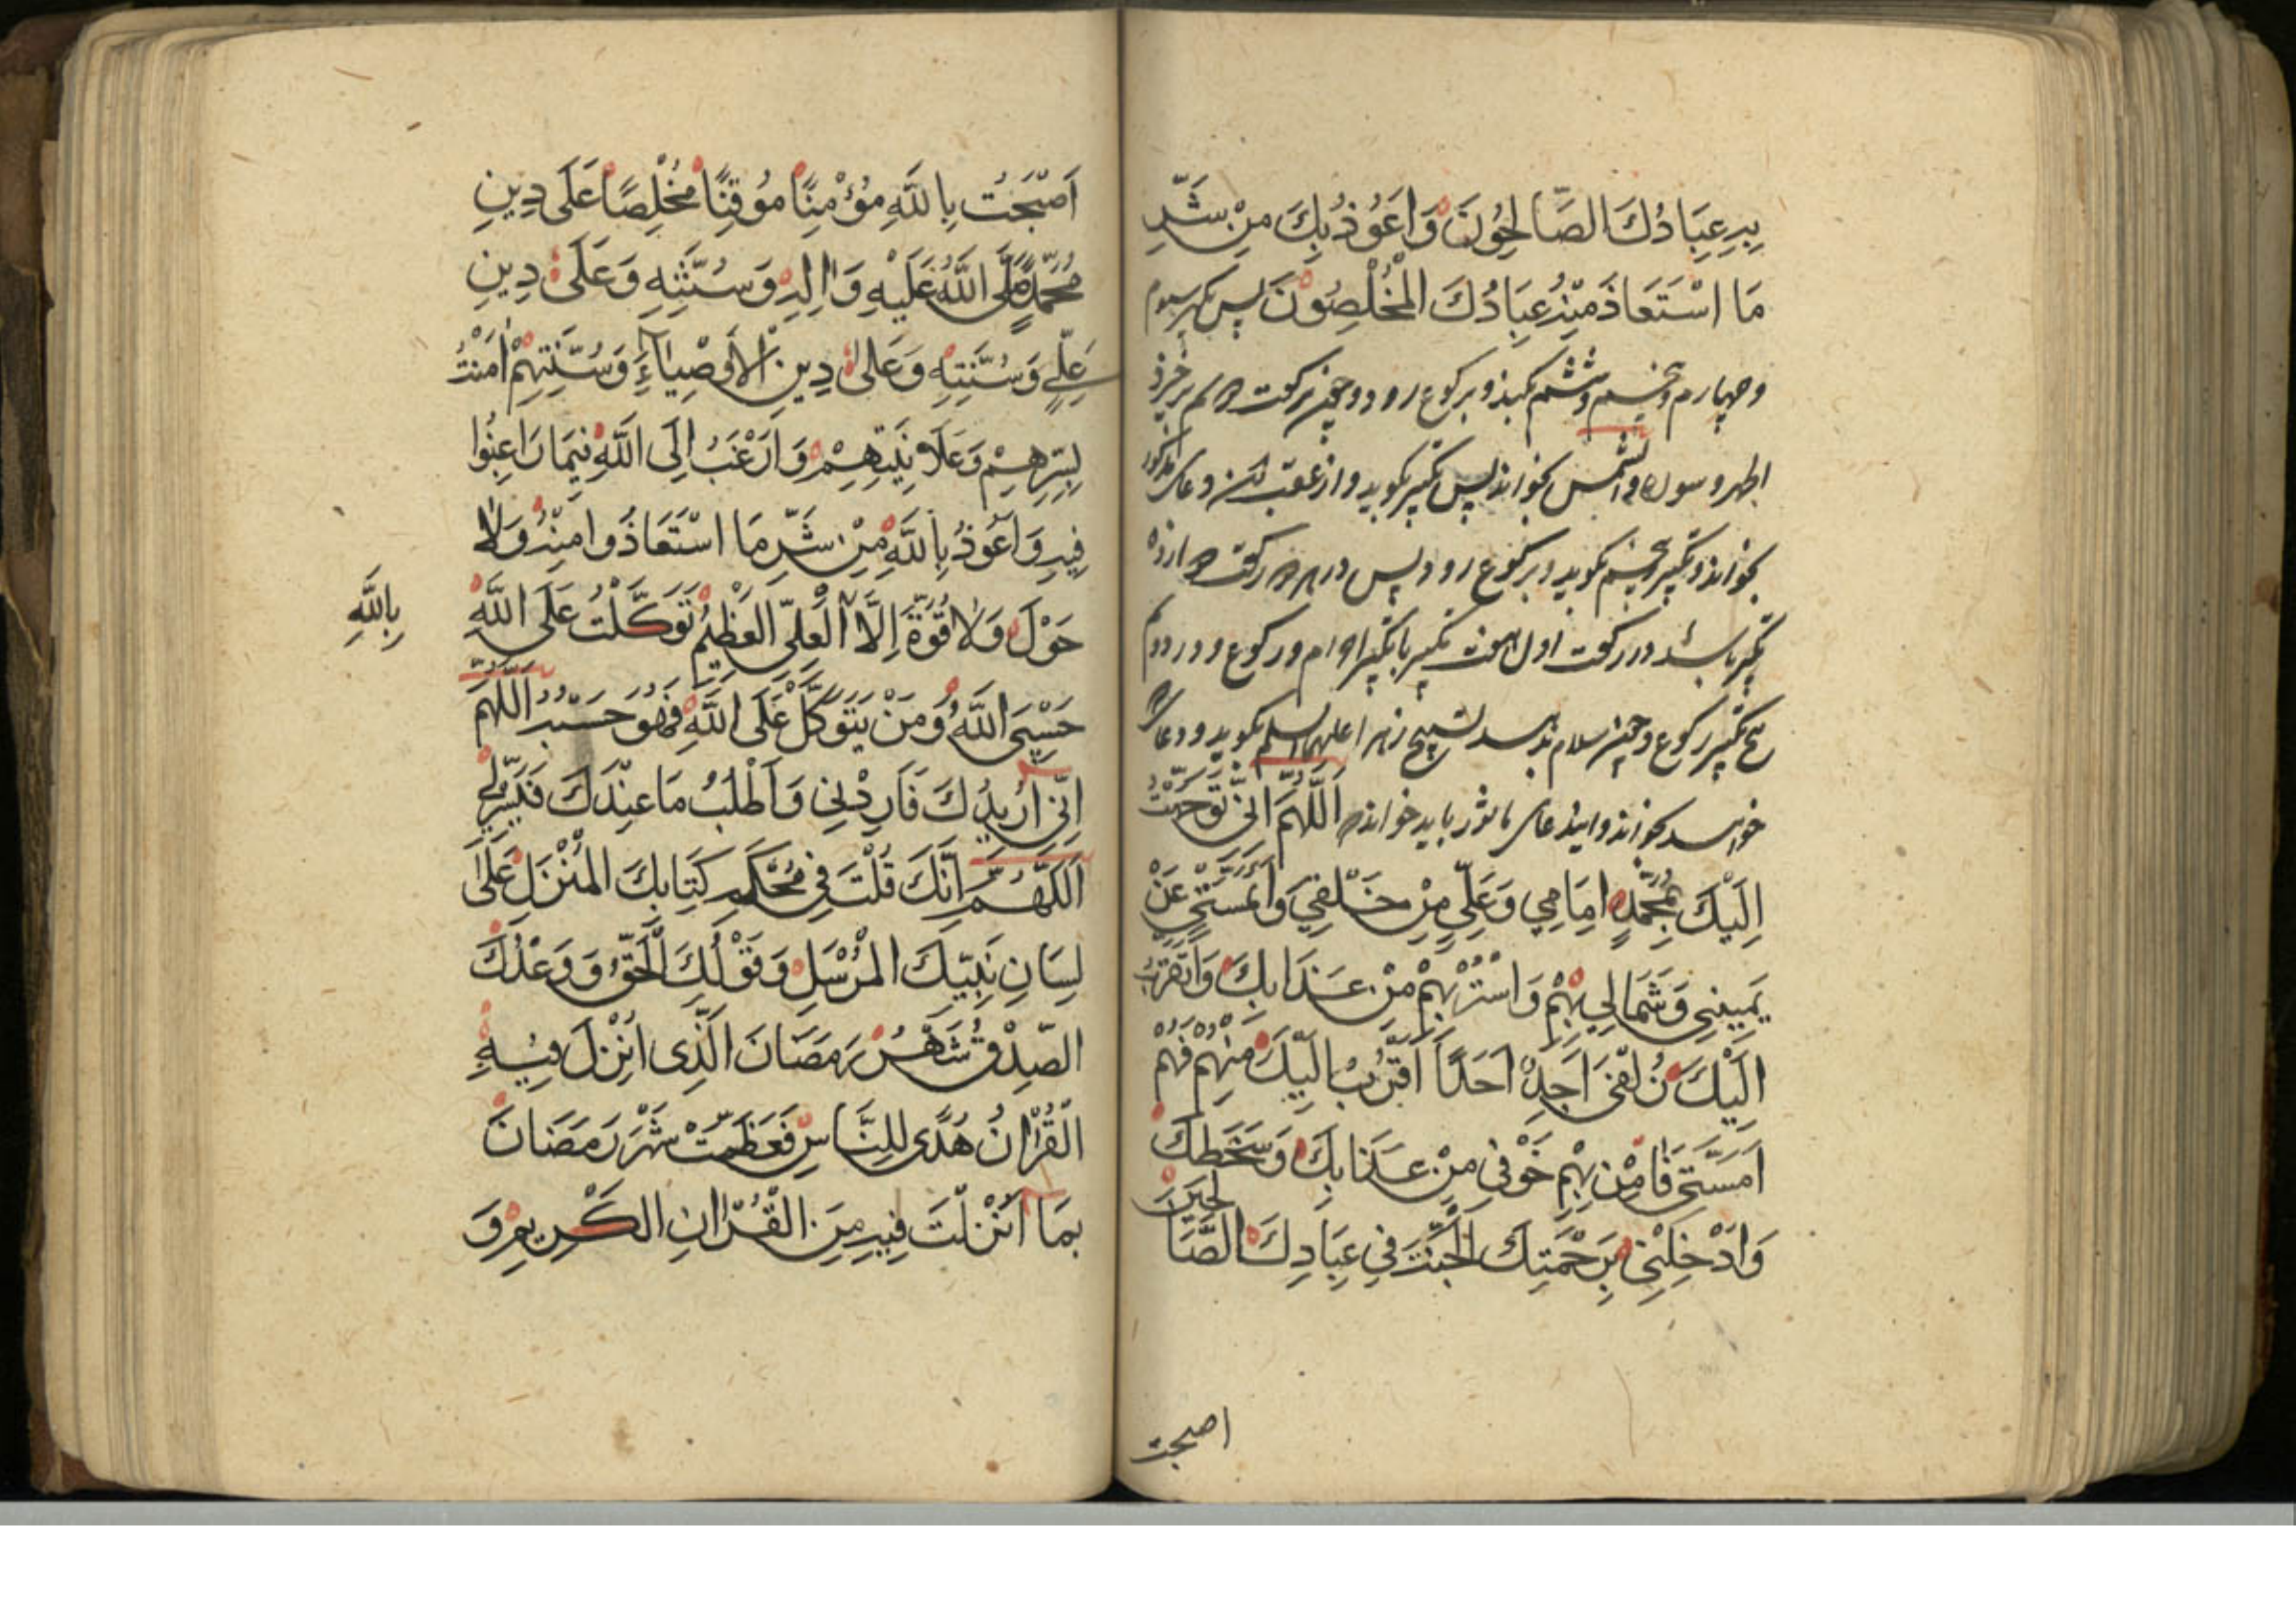 بِهِ عِبَادُكَ الصَّالِحُونَ وَاَعُوذُ بِكَ مِنْ شَرِّ
مَا اسْتَعَاذَ مِنْهُ عِبَادُكَ الْمُخْلِصُوْنَ پس تکبیر سیوم
و چهارم و پنجم و ششم بکند و برکوع رود و چون برکعت دوم برخیزد
الحمد و سوره والشمس بخواند پس تکبیر بکوید و از عقب آن دعای مذکور
بخواند و تکبیر پنجم بکوید و برکوع رود پس در هر دو رکعت دوازده
تکبیر باشد در رکعت اول هفت تکبیر با تکبیر احرام و رکوع و در دوم
پنج تکبیر با رکوع و چون سلام بدهد تسبیح زهرا علیها السلم بکوید و دعای که
خواهد بخواند و این دعای ماثور باید خواند اَللّٰهُمَّ اِنّي تَوَجَّهْتُ
اِلَيْكَ بِمُحَمَّدٍ اِمَامِي وَعَلِيٍّ مِنْ خَلْفِي وَاَئِمَّتِي عَنْ
يَمِينِي وَشَمَالِي بِهِمْ وَاسْتُرْبِهِمْ مِنْ عَذَابِكَ وَاَتَقَرَّبُ
اِلَيْكَ زُلْفٰى اَجِدْ اَحَدًا اَقْرَبُ اِلَيْكَ مِنْهُمْ فَهُمْ
اَئِمَّتِي فَاٰمِنْ بِهِمْ خَوْفِي مِنْ عَذَابِكَ وَسَخَطِكَ
وَادْخِلْنِي بِرَحْمَتِكَ الْجَنَّةَ فِي عِبَادِكَ الصَّالِحِينَ
اصبحت
اَصْبَحْتُ بِاللّٰهِ مُؤْمِنًا مُوقِنًا مُخْلِصًا عَلَى دِينِ
مُحَمَّدٍ صَلَّى اللّٰهُ عَلَيْهِ وَاٰلِهِ وَسُنَّتِهِ وَعَلَى دِينِ
عَلِيٍّ وَسُنَّتِهِ وَعَلٰى دِينِ الْاَوْصِيَاءِ وَسُنَّتِهِمْ اٰمَنْتُ
بِسِرِّهِمْ وَعَلَانِيَتِهِمْ وَاَرْغَبُ اِلَى اللّٰهِ فِيمَا رَاغِبُوا
فِيهِ وَاَعُوذُ بِاللّٰهِ مِنْ شَرِّ مَا اسْتَعَاذُوا مِنْهُ وَلَا
حَوْلَ وَلَا قُوَّةَ اِلَّا الْعَلِيِّ الْعَظِيْمِ تَوَكَّلْتُ عَلَى اللّٰهِ
بِاللّٰهِ
حَسْبِيَ اللّٰهُ وَمَنْ يَتَوَكَّلْ عَلَى اللّٰهِ فَهُوَ حَسْبُهُ اَللّٰهُمَّ
اِنِّي اُرِيدُكَ فَاَرِدْنِي وَاَطْلُبُ مَا عِنْدَكَ فَيَسِّرْ لِي
اَللّٰهُمَّ اِنَّكَ قُلْتَ فِي مُحْكَمِ كِتَابِكَ الْمُنْزَلِ عَلٰى
لِسَانِ نَبِيِّكَ الْمُرْسَلِ وَقَوْلُكَ الْحَقُّ وَوَعْدُكَ
الصِّدْقُ شَهْرُ رَمَضَانَ الَّذِى اُنْزِلَ فِيْهِ
الْقُرْاٰنُ هُدًى لِلنَّاسِ فَعَظَّمْتَ شَهْرَ رَمَضَانَ
بِمَا اَنْزَلْتَ فِيهِ مِنَ الْقُرْاٰنِ الْكَرِيمِ وَ